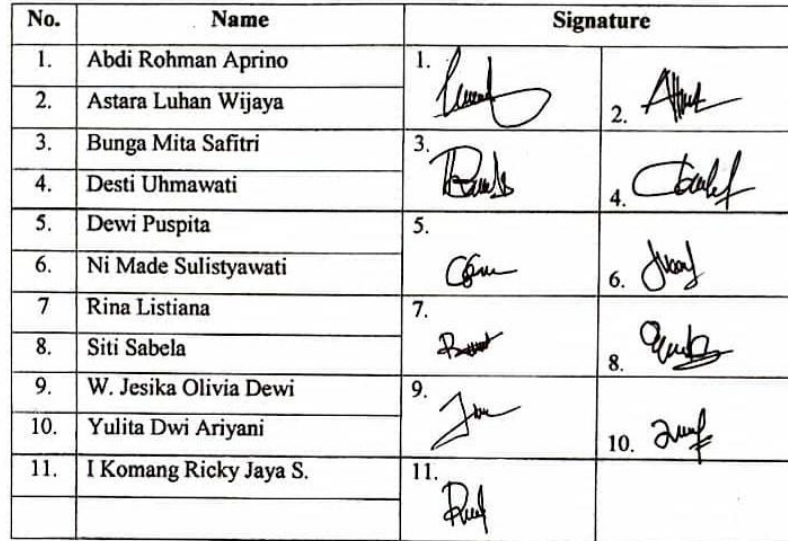 No. Name Signature
1. Abdi Rohman Aprino 1.
2. Astara Luhan Wijaya 2.
3. Bunga Mita Safitri 3.
4. Desti Uhmawati 4.
5. Dewi Puspita 5.
6. Ni Made Sulistyawati 6.
7 Rina Listiana 7.
8. Siti Sabela 8.
9. W. Jesika Olivia Dewi 9.
10. Yulita Dwi Ariyani 10.
11. I Komang Ricky Jaya S. 11.